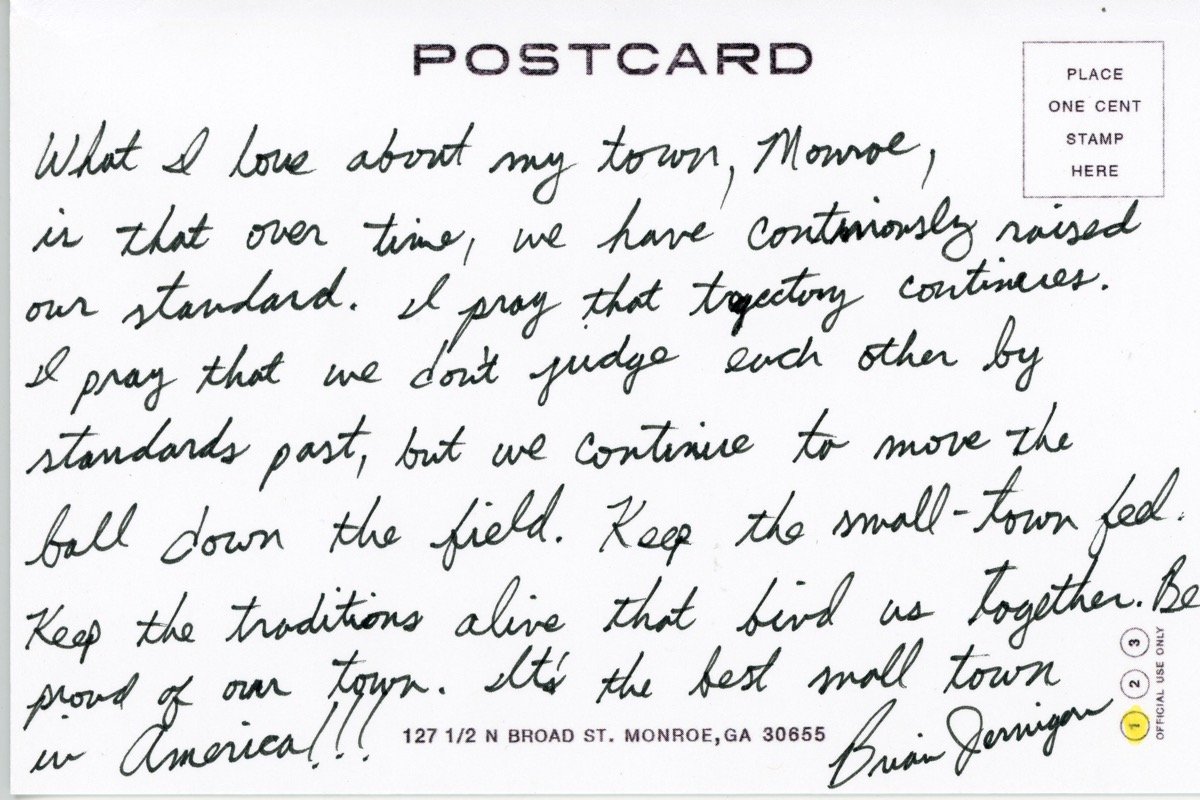 POSTCARD
PLACE
ONE CENT
STAMP
HERE
What I love about my town, Monroe,
is that over time, we have continiously raised
our standard. I pray that trajectory continues.
I pray that we don't judge each other by
standards past, but we continue to move the
ball down the field. Keep the small-town feel.
Keep the traditions alive that bind us together. Be
proud of our town. It's the best small town
in America!!!
Brian Jernigan
127 1/2 N BROAD ST. MONROE, GA 30655
1 2 3
OFFICIAL USE ONLY